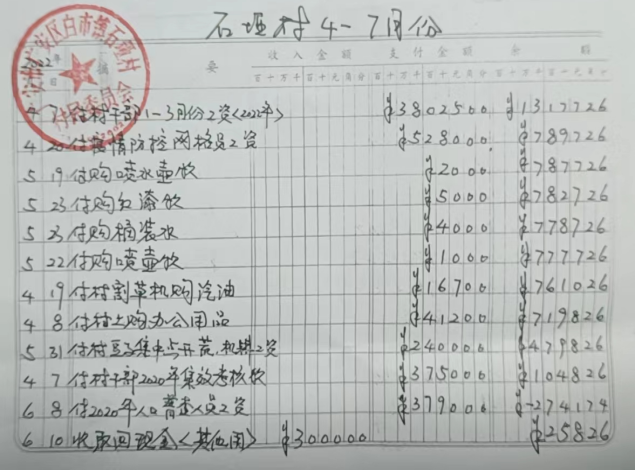 石垭村4-7月份
2022年
要 收入金额 支付金额 余额
百十万千百十元角分 百十万千百十元角分 百十万千百十元角分
4 7 付村干部1-3月份工资<2022年> ¥3802500 ¥1317726
4 20 付疫情防控网格员工资 ¥528000 ¥789726
5 19 付购喷水壶饮 ¥2000 ¥787726
5 23 付购红漆饮 ¥5000 ¥782726
5 23 付购桶装水 ¥4000 ¥778726
5 22 付购喷壶饮 ¥1000 ¥777726
4 19 付村割草机购汽油 ¥16700 ¥761026
4 8 付村上购办公用品 ¥41200 ¥719826
5 31 付村豆子集中点开荒,机耕工资 ¥240000 ¥479826
4 7 付村干部2020年集效考核饮 ¥375000 ¥104826
6 8 付2020年人口普查人员工资 ¥379000 ¥-274174
6 10 收取回现金<其他用> ¥300000 ¥25826